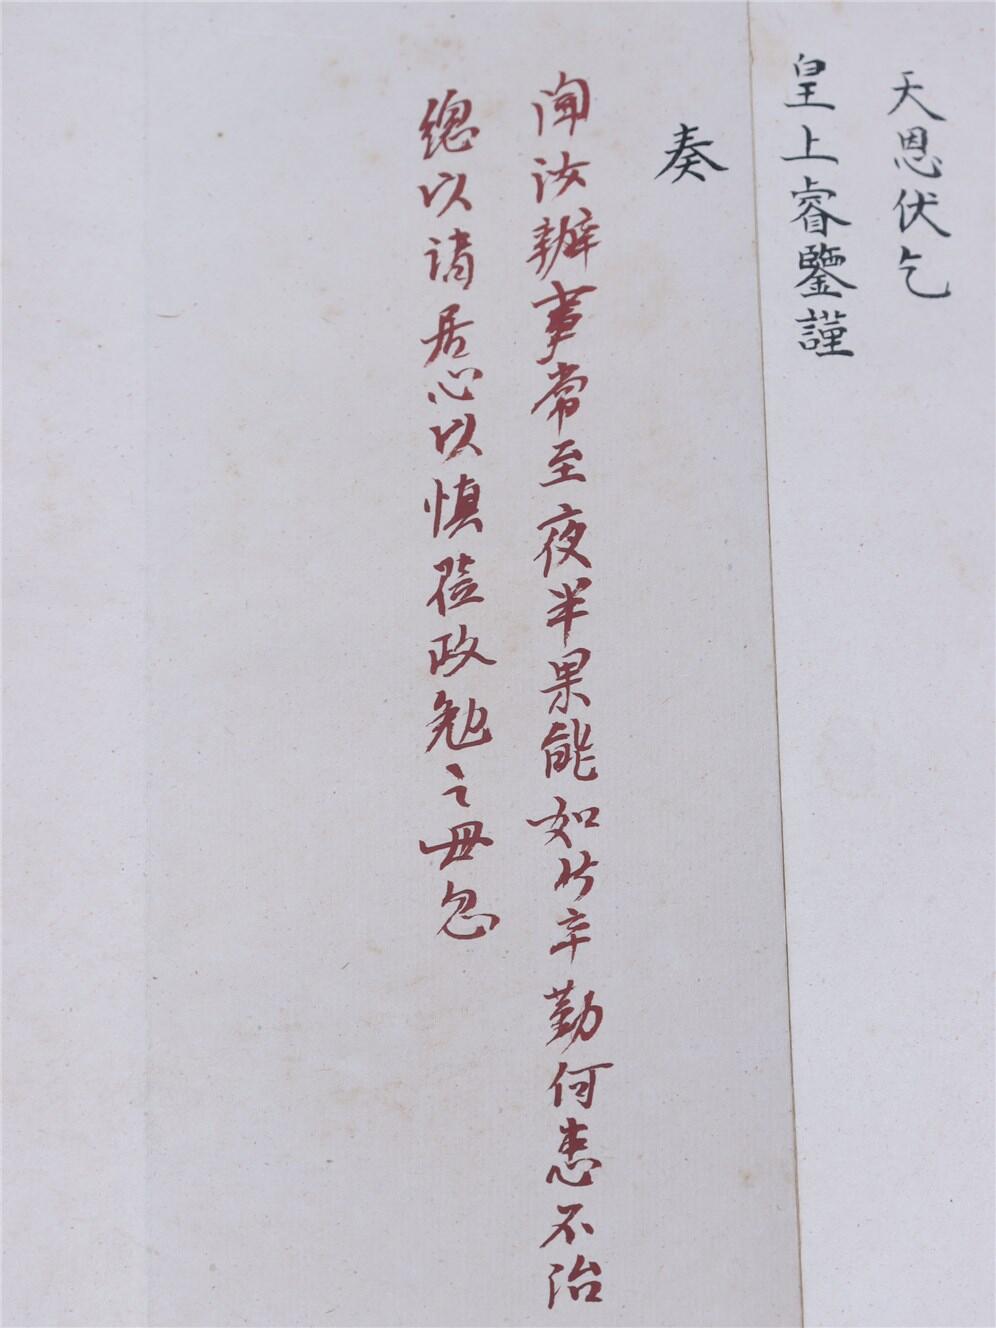 天恩伏乞
皇上睿鑒謹
奏
聞汝辦事常至夜半果能如此辛勤何患不治
總以清居心以慎蒞政勉之毋忽